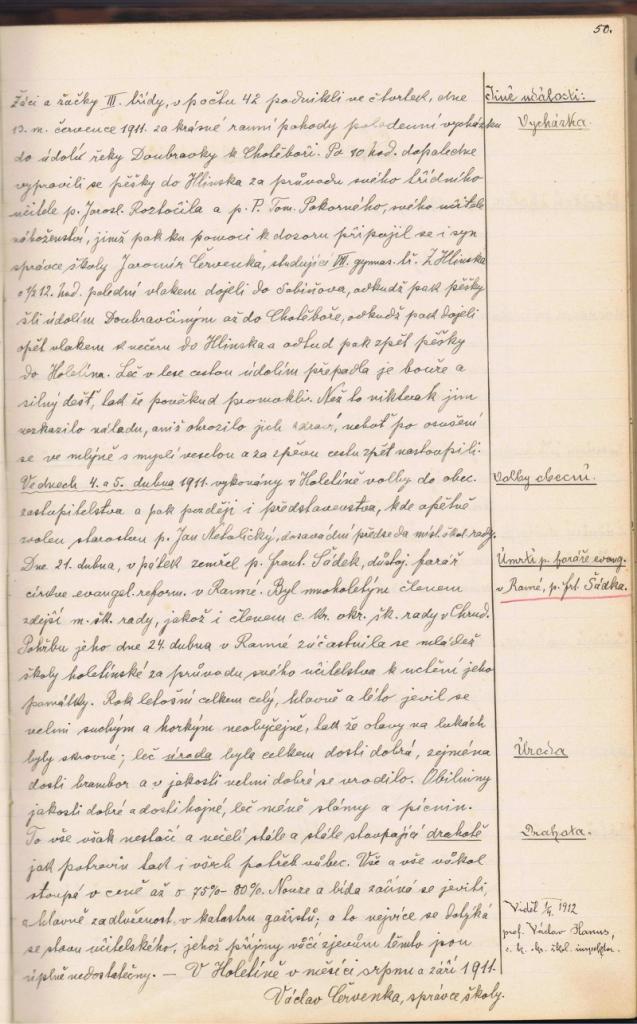 50.
Žáci a žačky III. třídy, v počtu 42 podnikli ve čtvrtek, dne
Jiné události:
13. m. července 1911 za krásné ranní pohody polodenní vycházku
Vycházka.
do údolí řeky Doubravky k Chotěboři. Po 10 hod. dopoledne
vypravili se pěšky do Hlinska za průvodu svého třídního
učitele p. Jarosl. Roztočila a p. P. Tom. Pokorného, svého učitele
náboženství, jimž pak ku pomoci k dozoru připojil se i syn
správce školy Jaromír Červenka, studující VII. gymnas. tř. Z Hlinska
o 1/2 12. hod. polední vlakem dojeli do Sobíňova, odkudž pak pěšky
šli údolím Doubravčiným až do Chotěboře, odkudž pak dojeli
opět vlakem k večeru do Hlinska a odtud pak zpět pěšky
do Holetína. Leč v lese cestou údolím přepadla je bouře a
silný déšť, tak že poněkud promokli. Než to nikterak jim
nezkazilo náladu, aniž ohrozilo jich zdraví, neboť po osušení
se ve mlýně s myslí veselou a za zpěvu cestu zpět nastoupili.
Ve dnech 4. a 5. dubna 1911. vykonány v Holetíně volby do obec.
Volby obecní.
zastupitelstva a pak později i představenstva, kde opětně
zvolen starostou p. Jan Netolický, dosavádní předseda míst. škol. rady.
Dne 21. dubna, v pátek zemřel p. Frant. Šádek, důstoj. farář
Úmrtí p. faráře evang.
církve evangel. reform. v Ranné. Byl mnoholetým členem
v Ranné, p. Frt. Šádka.
zdejší m. šk. rady, jakož i členem c. kr. okr. šk. rady v Chrud.
Pohřbu jeho dne 24. dubna v Ranné zúčastnila se mládež
školy holetínské za průvodu svého učitelstva k uctění jeho
památky. Rok letošní celkem celý, hlavně a léto jevil se
velmi suchým a horkým neobyčejně, tak že otavy na lukách
byly skrovné; leč úroda byla celkem dosti dobrá, zejména
Úroda
dosti brambor a v jakosti velmi dobré se urodilo. Obilniny
jakosti dobré a dosti hojné, leč méně slámy a pícnin.
To vše však nestačí a nečelí stále a stále stoupající drahotě
Drahota.
jak potravin tak i všech potřeb vůbec. Vše a vše vůkol
stoupá v ceně až o 75%–80%. Nouze a bída začíná se jeviti,
a hlavně zadluženost v katastru gažistů; a to nejvíce se dotýká
Viděl 1/4 1912
se stavu učitelského, jehož příjmy vůči zjevům těmto jsou
prof. Václav Hanus,
c. k. okr. škol. inspektor.
úplně nedostatečny. — V Holetíně v měsíci srpnu a září 1911.
Václav Červenka, správce školy.